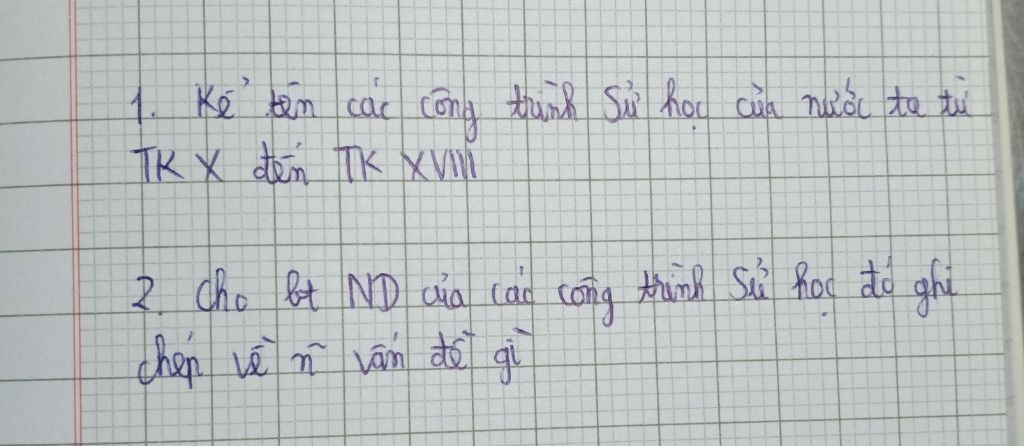 1. Kể tên các công trình Sử học của nước ta từ
TK X đến TK XVIII
2. Cho bt ND của các công trình Sử học đó ghi
chép về n~ vấn đề gì